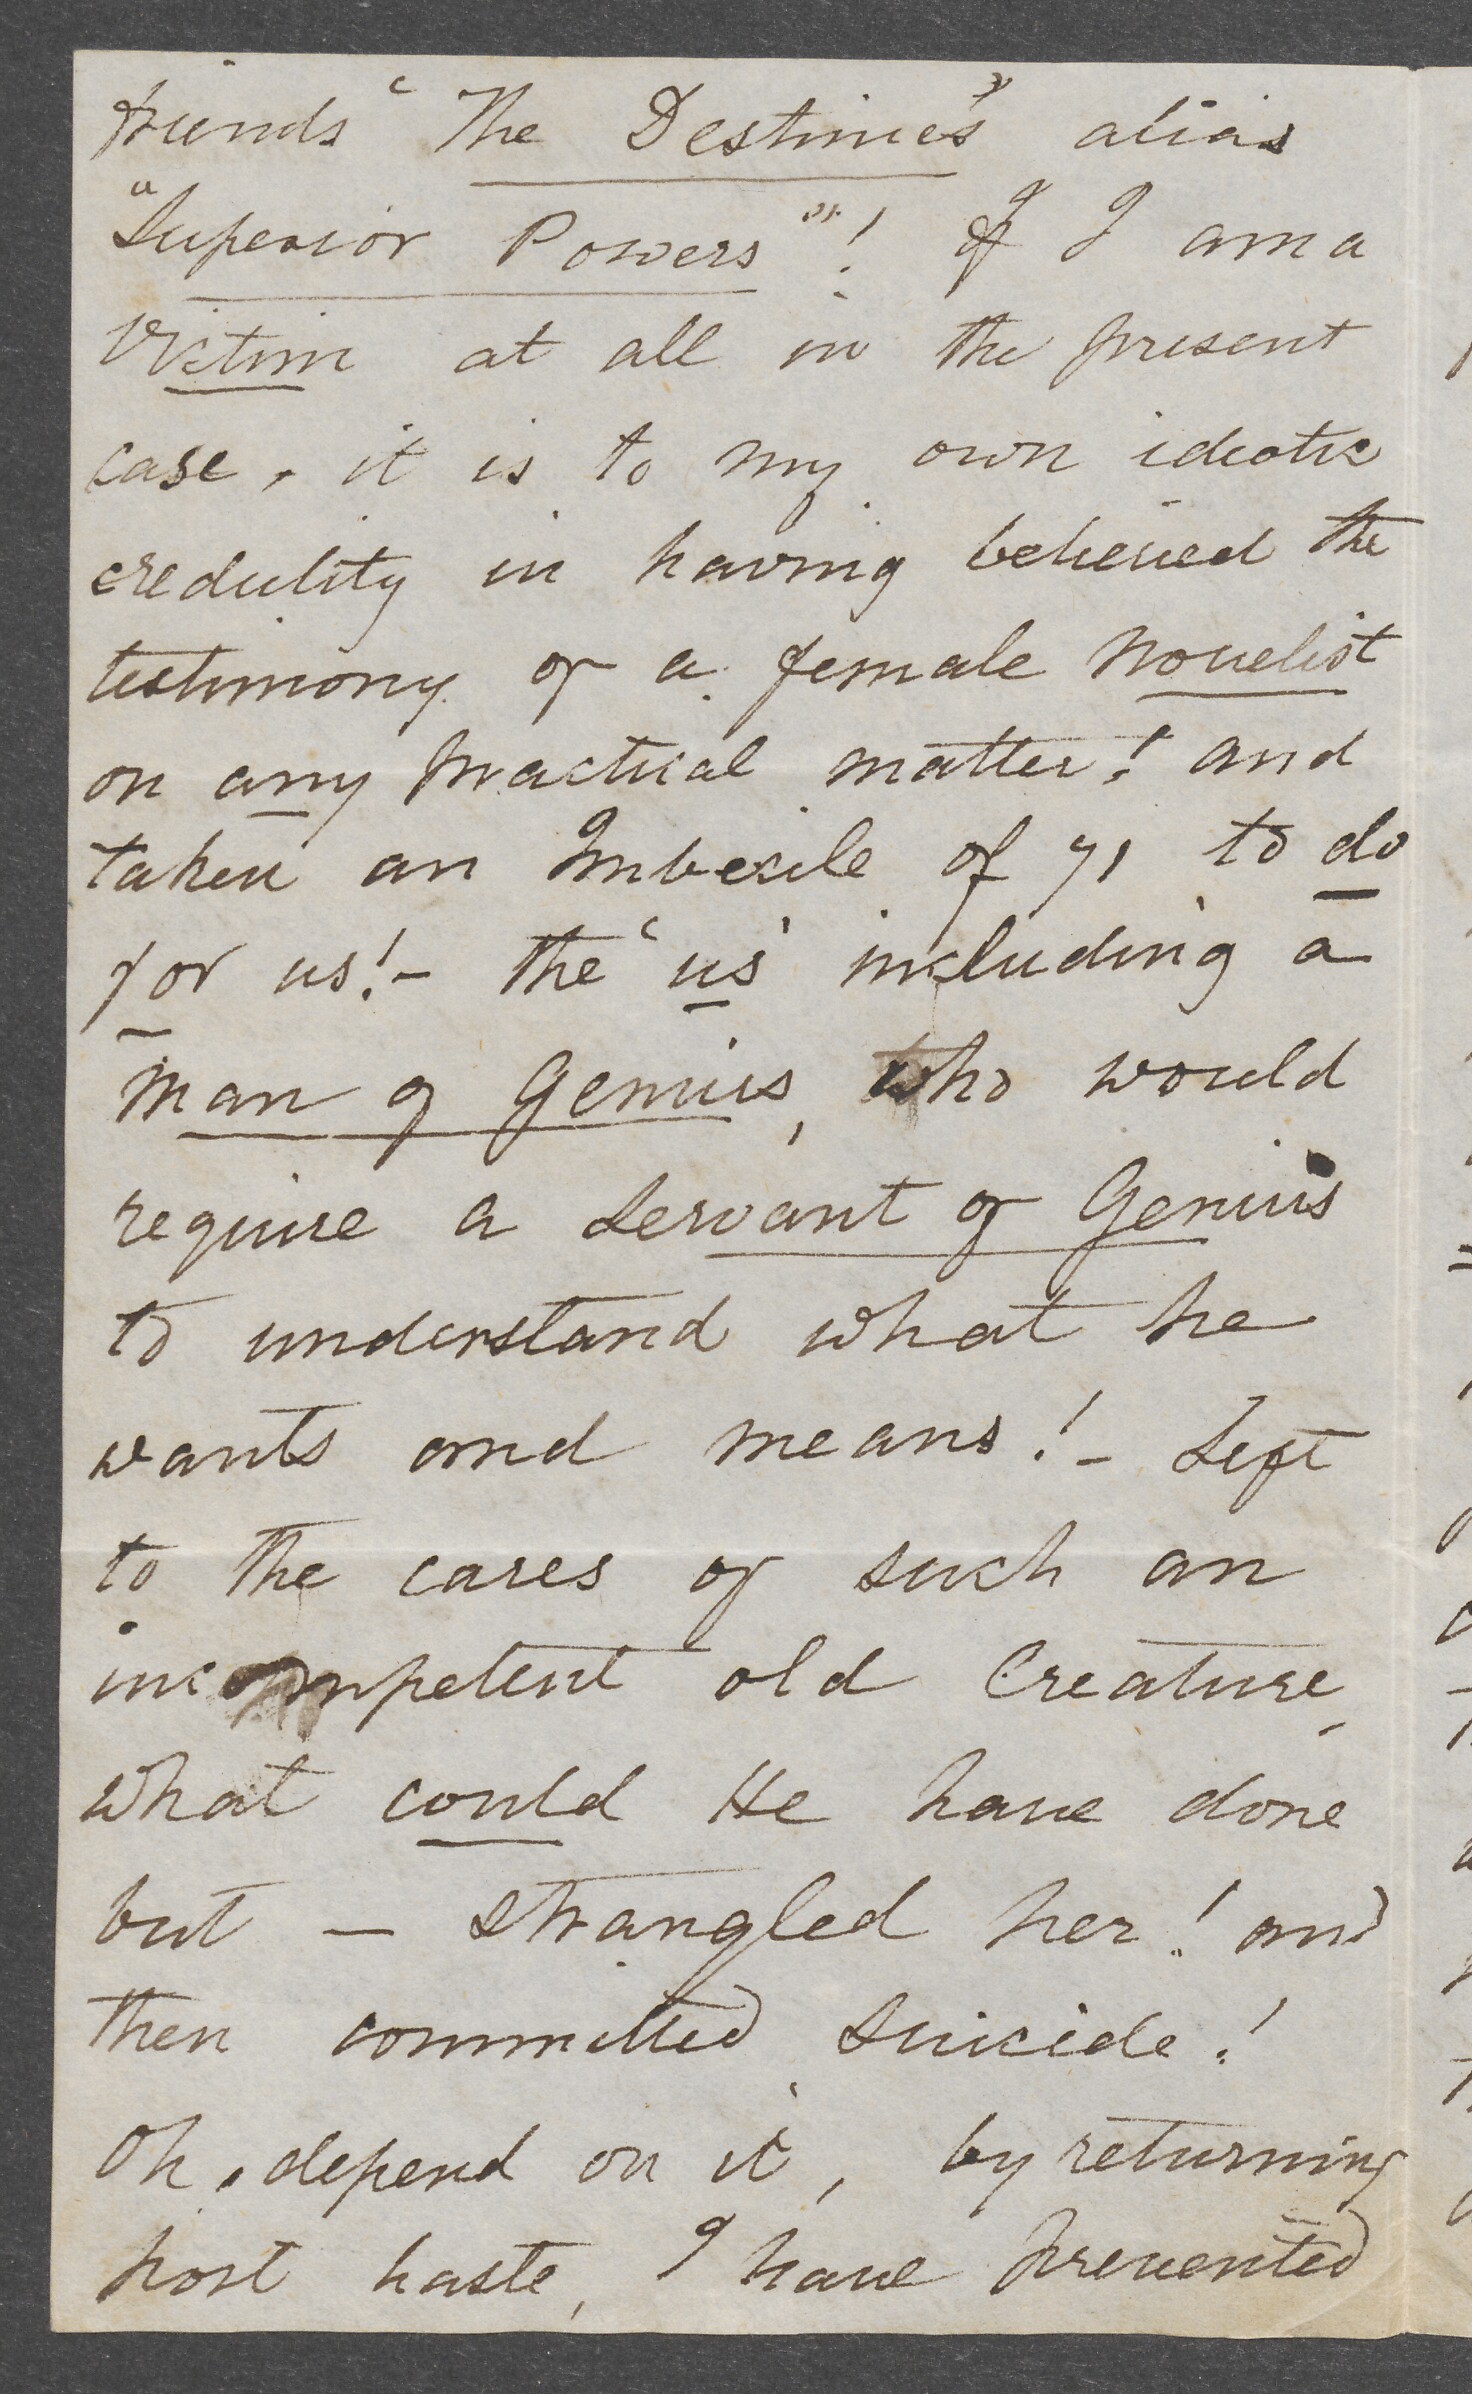 friends "The Destinies" alias
"Superior Powers"! If I am a
Victim at all in the present
case, it is to my own idiotic
credulity in having believed the
testimony of a female novelist
on any practical matter! and
taken an Imbecile of 71 to do
for us!- the 'us' including a
man of Genius, who would
require a Servant of Genius
to understand what he
wants and means!- Left
to the cares of such an
incompetent old Creature,
what could He have done
but — strangled her! and
then committed suicide!
Oh, depend on it, by returning
post haste, I have prevented